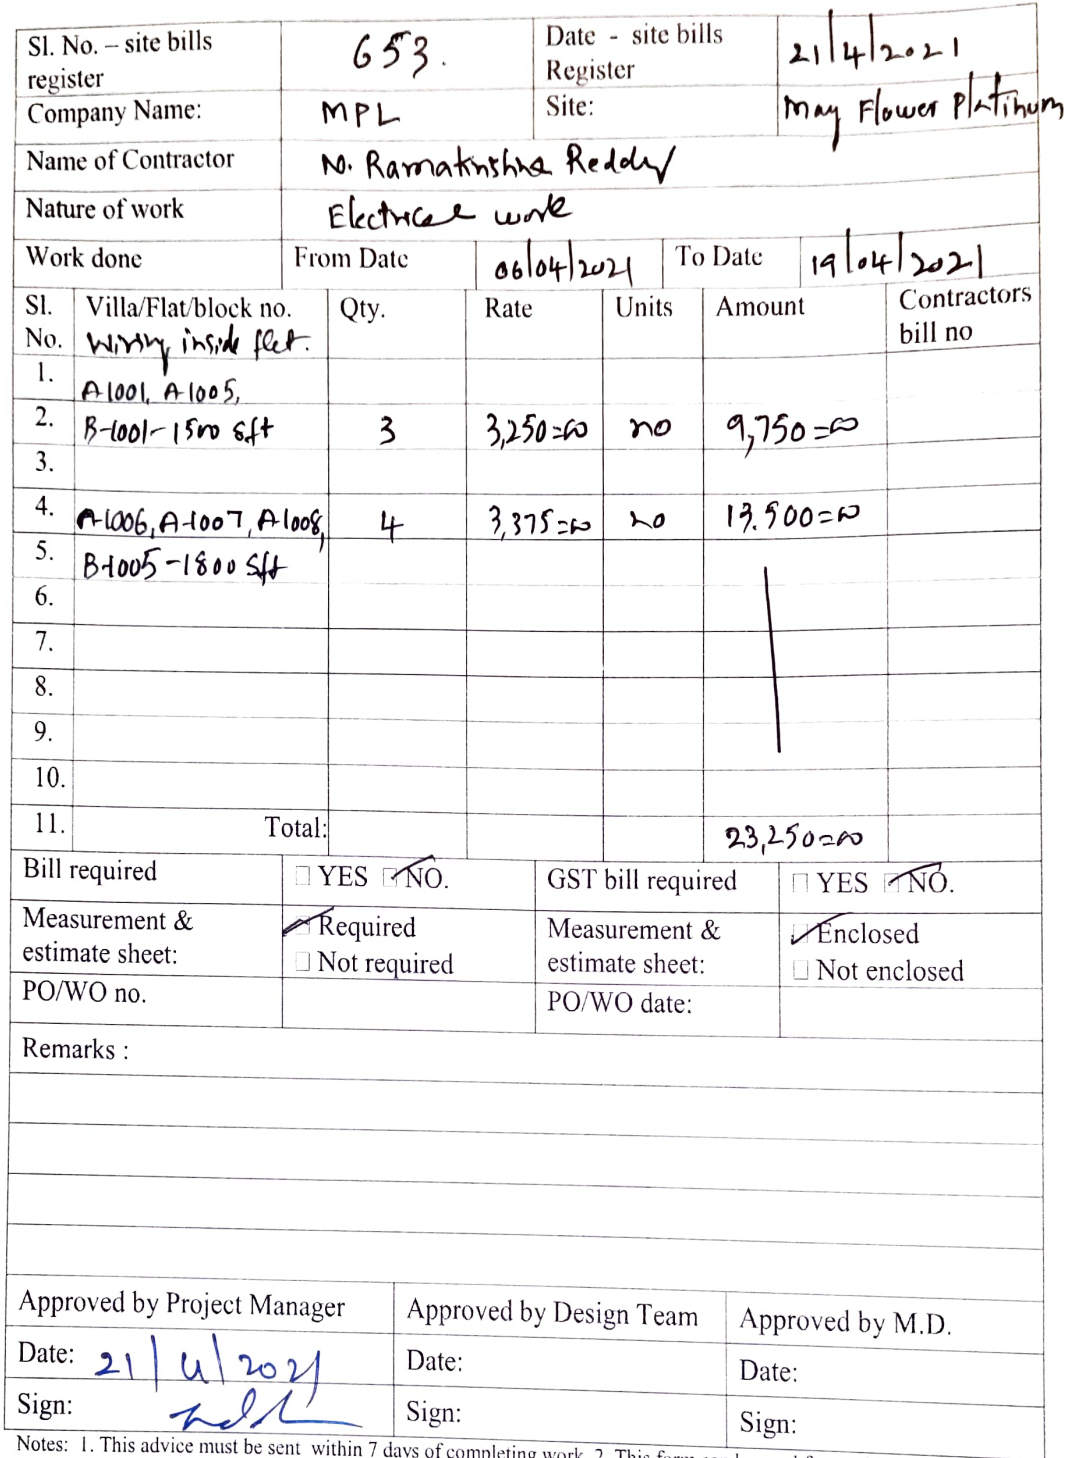 Sl. No. – site bills register 653. Date - site bills Register 21/4/2021
Company Name: MPL Site: May Flower Platinum
Name of Contractor N. Ramakrishna Reddy
Nature of work Electrical work
Work done From Date 06/04/2021 To Date 19/04/2021
Sl. No. Villa/Flat/block no. Qty. Rate Units Amount Contractors bill no
Wiring inside flat.
1. A1001, A1005,
2. B-1001-1500 sft 3 3,250=00 no 9,750=00
3.
4. A-1006, A-1007, A1008, 4 3,375=00 no 13.500=00
5. B-1005-1800 Sft
6.
7.
8.
9.
10.
11. Total: 23,250=00
Bill required YES NO. GST bill required YES NO.
Measurement & estimate sheet: Required Not required Measurement & estimate sheet: Enclosed Not enclosed
PO/WO no. PO/WO date:
Remarks :
Approved by Project Manager Approved by Design Team Approved by M.D.
Date: 21/4/2021 Date: Date:
Sign: Sign: Sign:
Notes: 1. This advice must be sent within 7 days of completing work. 2. This form